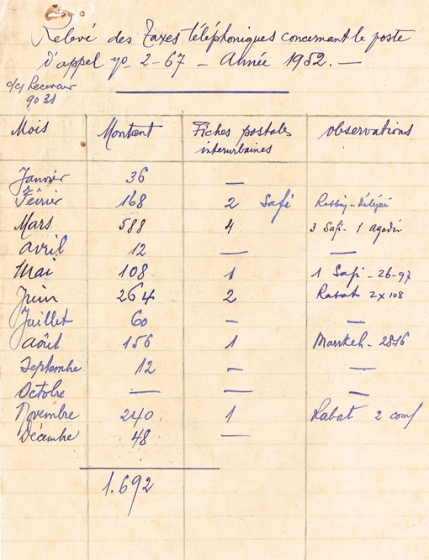 Relevé des Taxes téléphoniques concernant le poste
d'appel no 2-67 - Année 1952. -
Receveur
Mois Montant Fiches postales interurbaines observations
Janvier 36 —
Février 168 2 Safi
Mars 588 4 3 Safi - 1 agadir
avril 12 — —
Mai 108 1 1 Safi - 26-97
Juin 264 2 Rabat 2 x 108
Juillet 60 — —
Août 156 1 Marrkch - 2816
Septembre 12 — —
Octobre — — —
Novembre 240 1 Rabat 2 comf
Décembre 48 —
1.692